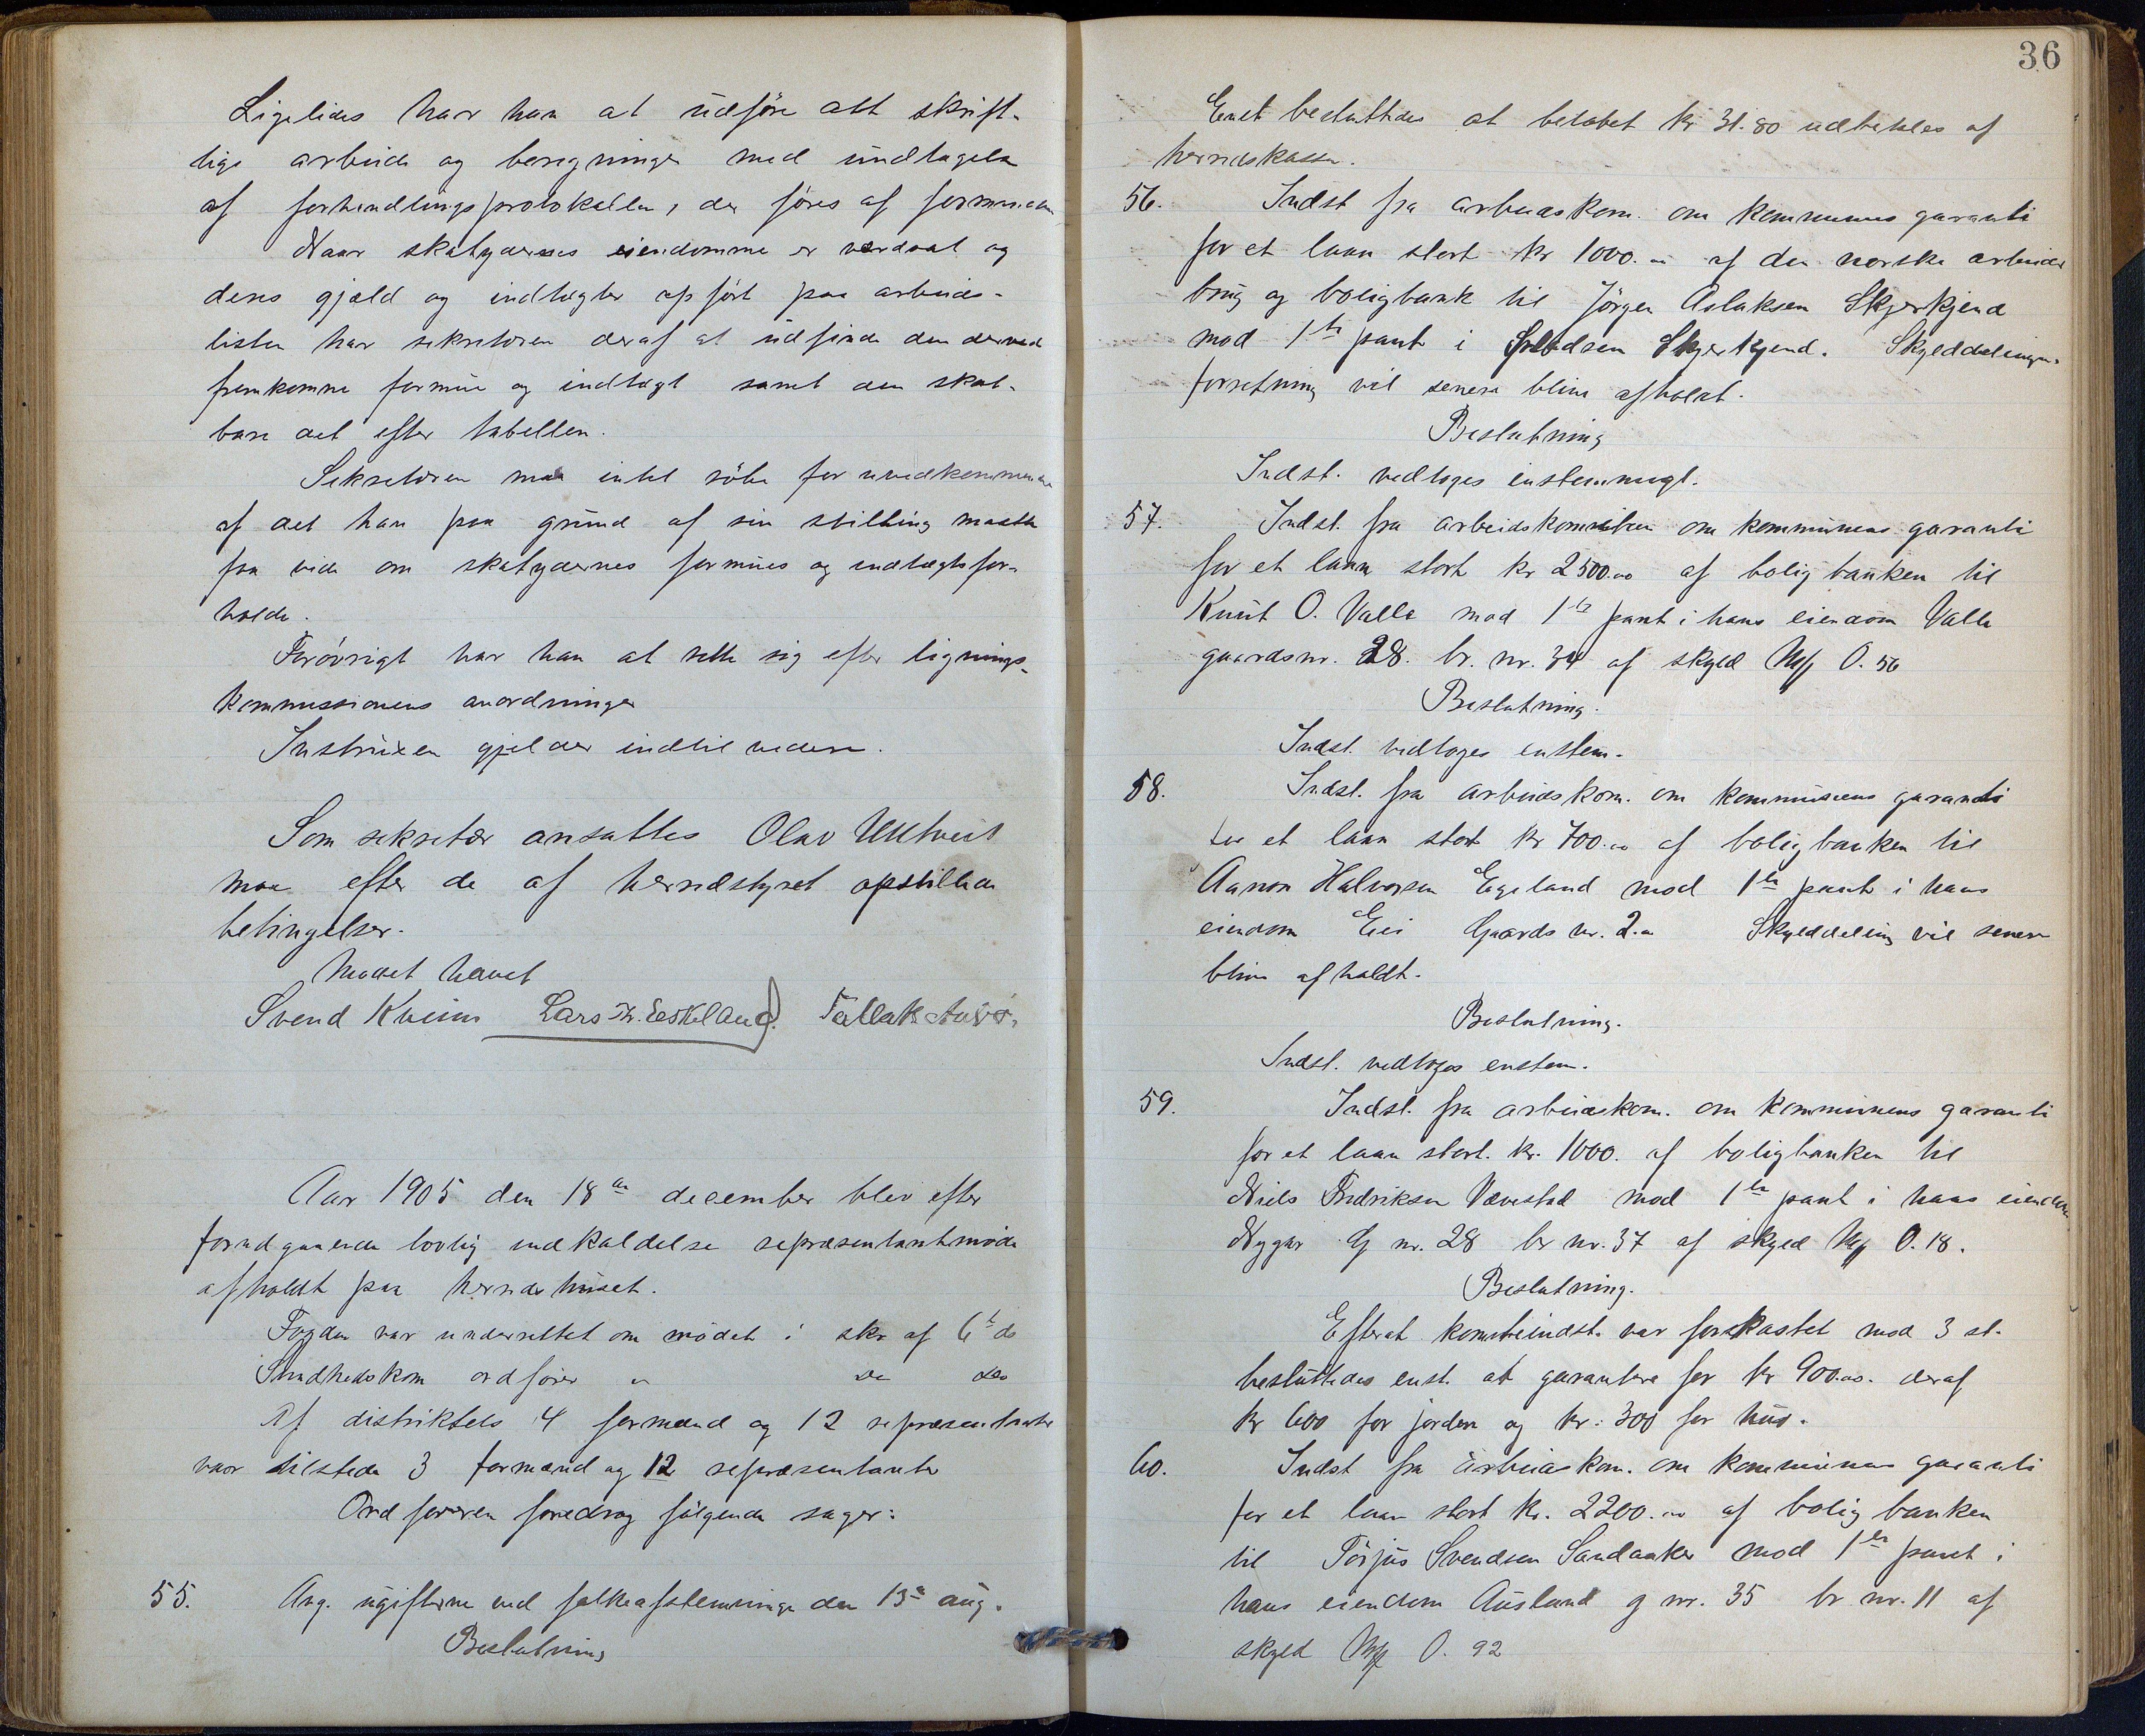 Ligeledes har han at udføre alt skrift-
lige arbeide og beregninger med undtagelse
af forhandlingsprotokollen, der føres af formanden
Naar skatydernes eiendomme er verdsat og
deres gjæld og indtægter opført paa arbeids-
listen har sekretæren deraf at udfinde den derved
fremkomne formue og indtægt samt den skat-
bare del efter tabellen.
Sekretæren maa intet røbe for uvedkommende
af det han paa grund af sin stilling maatte
faa vide om skatydernes formues og indtægtsfor-
holde.
Forøvrigt har han at rette sig efter lignings-
kommissionens anordninger
Instruxen gjelder indtil videre.
Som sekretær ansattes Olav Ulltveit
Moe efter de af herredstyret opstillede
betingelser.
Mødet hævet
Svend Kveim Lars Kr. Eeskeland. Tallak
Aar 1905 den 18de december blev efter
forudgaaende lovlig indkaldelse repræsentantmøde
afholdt paa herredshuset.
Fogden var underrettet om mødet i skr af 6t ds
Sundhedskom ordfører " do do
Af distriktets 4 formænd og 12 repræsentanter
var tilstede 3 formænd og 12 repræsentanter
Ordføreren foredrog følgende sager:
55. Ang. ugifterne ved folkeafstemninge den 13de aug.
Beslutning
36
Enst besluttedes at beløbet kr 31.80 udbetales af
herredskassen.
56. Indst fra arbeidskom. om kommunens garanti
for et laan stort kr 1000.00 af den norske arbeider
brug og boligbank til Jörgen Aslaksen Skjerkjend
mod 1ste pant i Skjerkjend. Skylddelings-
forretning vil senere blive afholdt.
Beslutning
Indst. vedtoges enstemmigt.
57. Indst. fra arbeidskomiteen om kommunens garanti
for et laan stort kr 2500.00 af boligbanken til
Knut O. Valle mod 1ste pant i hans eiendom Valle
gaardsnr. 28. br. nr. 34 af skyld Mk 0.56
Beslutning.
Indst. vedtoges enstem.
58. Indst. fra arbeidskom. om kommunens garanti
for et laan stort kr 700.00 af boligbanken til
Aanon Halvorsen Egeland mod 1ste pant i hans
eiendom Eei Gaards nr. 2. Skylddeling vil senere
blive afholdt.
Beslutning.
Indst. vedtoges enstem.
59. Indst. fra arbeidskom. om kommunens garanti
for et laan stort. kr. 1000. af boligbanken til
Niels Fredriksen Vævestad mod 1ste pant i hans eiendom
Nygar G nr. 28 br nr. 37 af skyld Mk 0.18.
Beslutning.
Efterat komiteindst. var forkastet mod 3 st.
besluttedes enst. at garantere for kr 900.00. deraf
kr 600 for jorden og kr. 300 for hus.
60. Indst fra arbeidskom. om kommunens garanti
for et laan stort kr. 2200.00 af boligbanken
til Törjus Svendsen Sandaaker mod 1ste pant i
hans eiendom Ausland g nr. 35 br nr. 11 af
skyld Mk 0.92